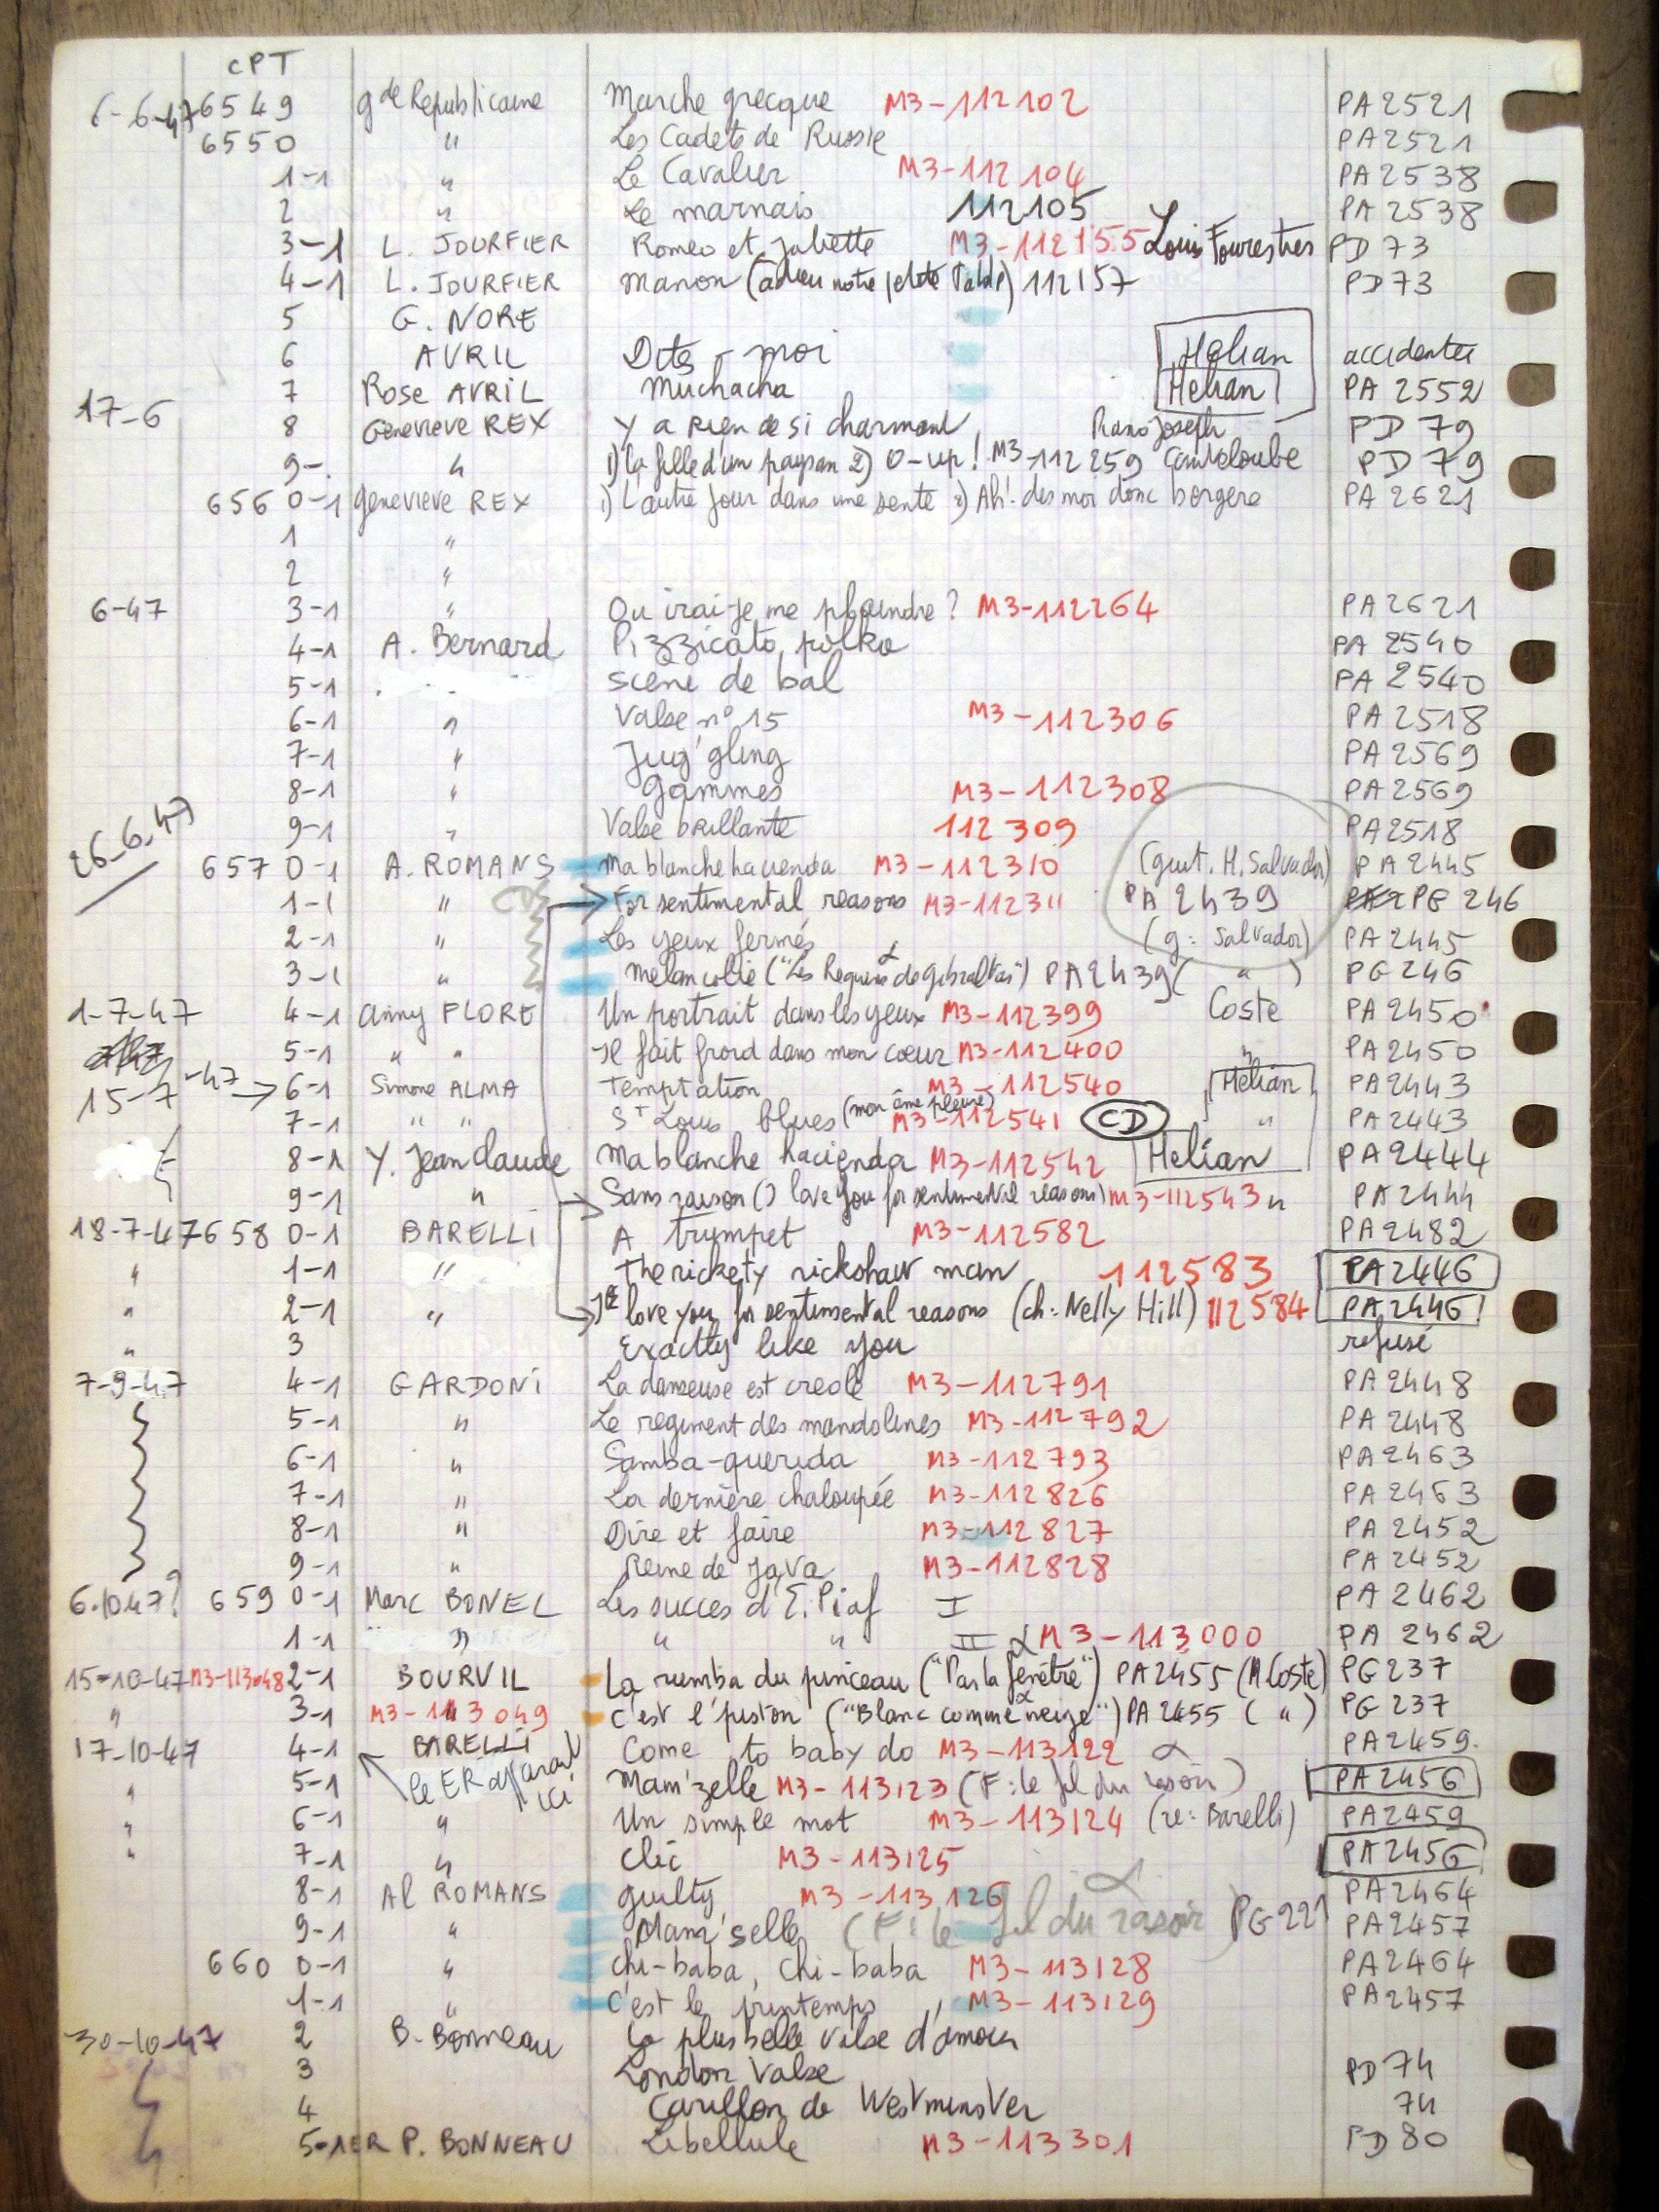 CPT
6-6-47 6549 gde Republicaine Marche grecque M3-112102 PA2521
6550 " Les Cadets de Russie PA2521
1-1 " Le Cavalier M3-112104 PA2538
2 " Le marnais 112105 PA2538
3-1 L. JOURFIER Romeo et Juliette M3-112155 Louis Fourestres PD73
4-1 L. JOURFIER Manon (adieu notre petite table) 112157 PD73
5 G. NORE
6 AVRIL Dites-moi Helian accidentée
7 Rose AVRIL Muchacha Helian PA 2552
17-6 8 Genevieve REX Y a rien de si charmant Piano Joseph PD 79
9-. " 1) la fille d'un paysan 2) O-up! M3-112259 Canteloube PD 79
656 0-1 genevieve REX 1) L'autre jour dans une sente 2) Ah! des moi donc bergere PA 2621
1 "
2 "
6-47 3-1 " Ou irai-je me plaindre? M3-112264 PA2621
4-1 A. Bernard Pizzicato polka PA 2540
5-1 Scene de bal PA 2540
6-1 " Valse n° 15 M3-112306 PA2518
7-1 " Jug'gling PA2569
8-1 " Gammes M3-112308 PA2569
9-1 " Valse brillante 112309 PA2518
26-6.47 657 0-1 A. ROMANS Ma blanche hacienda M3-112310 (guit. H. Salvador) PA2445
1-1 " For sentimental reasons M3-112311 PA 2439 PG 246
2-1 " Les yeux fermés (g: Salvador) PA2445
3-1 " Melancolie ("Les Requins de Gibraltar") PA2439 ( " ) PG246
1-7-47 4-1 Anny FLORE Un portrait dans les yeux M3-112399 Coste PA2450
5-1 " " Il fait froid dans mon coeur M3-112400 " PA2450
15-7-47 → 6-1 Simone ALMA Temptation M3-112540 Helian PA2443
7-1 " " St Louis blues (mon âme pleure) M3-112541 CD " PA2443
8-1 Y. Jean Claude Ma blanche hacienda M3-112542 Helian PA2444
9-1 " Sans raison (I love you for sentimental reasons) M3-112543 " PA2444
18-7-47 658 0-1 BARELLI A trumpet M3-112582 PA2482
" 1-1 " The rickety rickshaw man 112583 PA2446
" 2-1 " I love you for sentimental reasons (ch: Nelly Hill) 112584 PA2446
" 3 Exactly like you refusé
7-9-47 4-1 GARDONI La danseuse est creole M3-112791 PA2448
5-1 " Le regiment des mandolines M3-112792 PA2448
6-1 " Samba-querida M3-112793 PA2463
7-1 " La dernière chaloupée M3-112826 PA2463
8-1 " Dire et faire M3-112827 PA2452
9-1 " Reine de java M3-112828 PA2452
6.10.47? 659 0-1 Marc BONEL Les succes d'E. Piaf I PA2462
1-1 " " " II α M3-113000 PA 2462
15-10-47 M3-113048 2-1 BOURVIL La rumba du pinceau ("Par la fenêtre") PA2455 (M. Coste) PG237
" 3-1 M3-113049 c'est l'piston ("Blanc comme neige") PA2455 ( " ) PG237
17-10-47 4-1 BARELLI Come to baby do M3-113122 α PA2459
" 5-1 le ER apparait ici Mam'zelle M3-113123 (F: le fil du rasoir) PA2456
" 6-1 " Un simple mot M3-113124 (re: Barelli) PA2459
" 7-1 " Clic M3-113125 PA2456
8-1 Al ROMANS guilty M3-113126 α PA2464
9-1 " Mam'selle (F: le fil du rasoir) PG221 PA2457
660 0-1 " chi-baba, chi-baba M3-113128 PA2464
1-1 " C'est le printemps M3-113129 PA2457
30-10-47 2 B. Bonneau La plus belle valse d'amour
3 London Valse PD74
4 Carillon de Westminster 74
5-1ER P. BONNEAU Libellule M3-113301 PD80